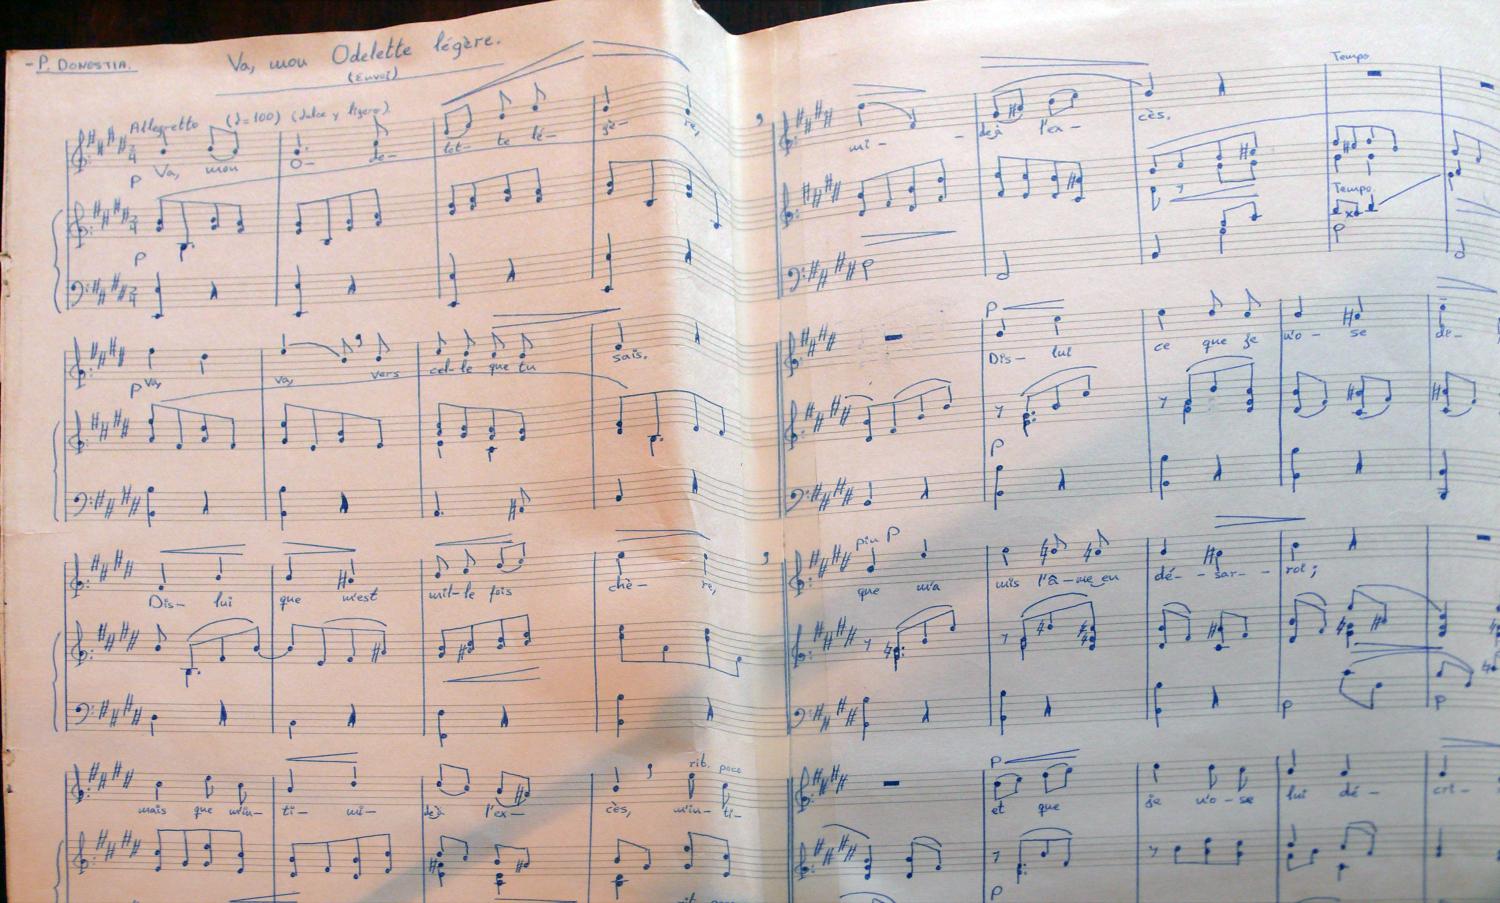 - P. DONOSTIA.
Va, mon Odelette légère.
(Envoi)
Allegretto (♩=100) (dulce y ligero)
Va, mon O- de- let- te lé- gè- re,
P
P
va, va, vers cel-le que tu sais.
P
Dis- lui que m'est mil-le fois chè- re,
mais que m'in- ti- mi- dejà l'ex- cès, m'in- ti-
rit. poco
Tempo
mi- dejà l'ex- cès.
Tempo.
P
P
Dis- lui ce que je n'o- se dé-
P
piu P
que m'a mis l'â-me en dé- - sar- - roi;
P P
P
et que je n'o-se lui dé- cri-
P